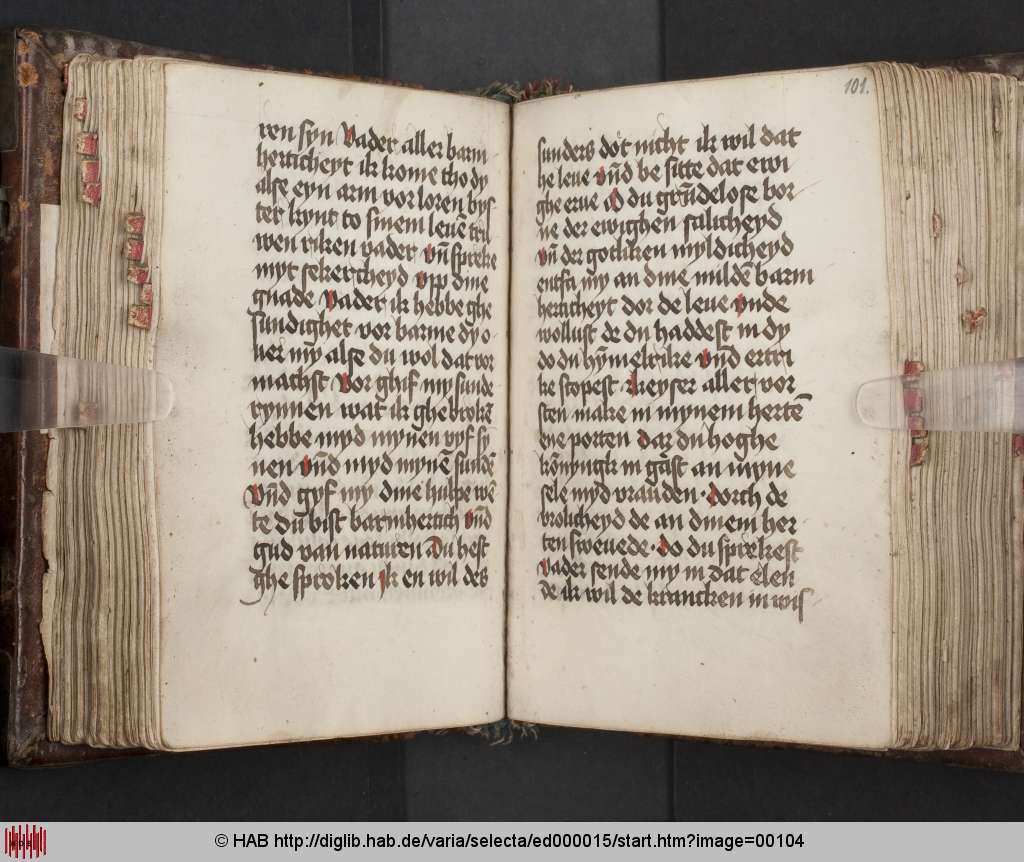 ren syn Vader aller barm
herticheyt ik kome tho dy
alse eyn arm vor loren bys
ter kynt to sinem leuē tru
wen riken vader vn̄ spreke
myt sekercheyd vpp dine
gnade Vader ik hebbe ghe
sundighet vor barme dy o
uer my alse du wol dat vor
machst Vor ghif my sunde
rynnen wat ik ghebrokē
hebbe myd mynen vyf sy
nen vn̄d myd mynē sundē
Vn̄d gyf my dine hulpe wē
te du bist barmhertich vn̄d
gud van naturen Du hest
ghe sproken ik en wil des
101.
sunders dot nicht ik wil dat
he leue vn̄d be sitte dat ewi
ghe erue O du grūdelose bor
ne der ewighen salicheyd
vn̄ der gotliken myldicheyd
entfa my an dine mildē barm
herticheyt dor de leue vnde
wollust de du haddest in dy
do du hȳmelrike vn̄d ertri
ke scopest keyser aller vor
sten make in mynem hertē
ene porten dar du hoghe
kōnyngk in gāst an myne
sele myd vrauden · dorch de
vrolicheyd de an dinem her
ten sweuede · do du sprekest
vader sende my in dat elen
de ik wil de krancken in wis
© HAB http://diglib.hab.de/varia/selecta/ed000015/start.htm?image=00104